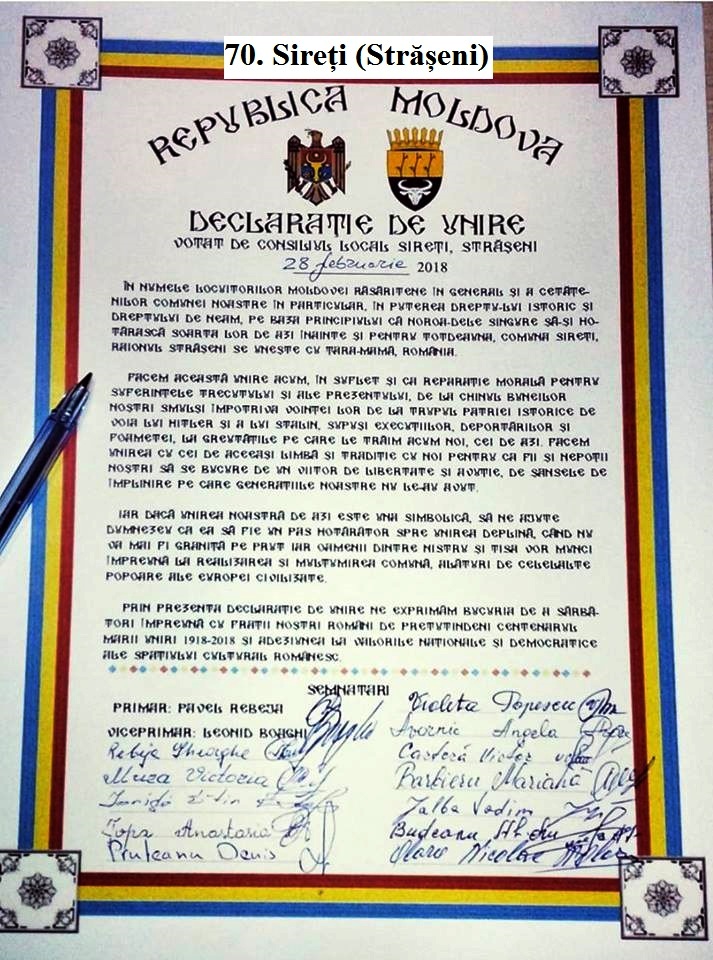 70. Sireți (Strășeni)
REPUBLICA MOLDOVA
DECLARAȚIE DE UNIRE
VOTAT DE CONSILIUL LOCAL SIREȚI, STRĂȘENI
28 februarie 2018
ÎN NUMELE LOCUITORILOR MOLDOVEI RĂSĂRITENE ÎN GENERAL ȘI A CETĂȚE-
NILOR COMUNEI NOASTRE ÎN PARTICULAR, ÎN PUTEREA DREPTU-LUI ISTORIC ȘI
DREPTULUI DE NEAM, PE BAZA PRINCIPIULUI CĂ NOROA-DELE SINGURE SĂ-ȘI HO-
TĂRASCĂ SOARTA LOR DE AZI ÎNAINTE ȘI PENTRU TOTDEAUNA, COMUNA SIREȚI,
RAIONUL STRĂȘENI SE UNEȘTE CU ȚARA-MAMĂ, ROMÂNIA.
FACEM ACEASTĂ UNIRE ACUM, ÎN SUFLET ȘI CA REPARAȚIE MORALĂ PENTRU
SUFERINȚELE TRECUTULUI ȘI ALE PREZENTULUI, DE LA CHINUL BUNEILOR
NOȘTRI SMULȘI ÎMPOTRIVA VOINȚEI LOR DE LA TRUPUL PATRIEI ISTORICE DE
VOIA LUI HITLER ȘI A LUI STALIN, SUPUȘI EXECUȚIILOR, DEPORTĂRILOR ȘI
FOAMETEI, LA GREUTĂȚILE PE CARE LE TRĂIM ACUM NOI, CEI DE AZI. FACEM
UNIREA CU CEI DE ACEEAȘI LIMBĂ ȘI TRADIȚIE CU NOI PENTRU CA FII ȘI NEPOȚII
NOȘTRI SĂ SE BUCURE DE UN VIITOR DE LIBERTATE ȘI AVUȚIE, DE ȘANSELE DE
ÎMPLINIRE PE CARE GENERAȚIILE NOASTRE NU LE-AU AVUT.
IAR DACĂ UNIREA NOASTRĂ DE AZI ESTE UNA SIMBOLICĂ, SĂ NE AJUTE
DUMNEZEU CA EA SĂ FIE UN PAS HOTĂRÂTOR SPRE UNIREA DEPLINĂ, CÂND NU
VA MAI FI GRANIȚĂ PE PRUT IAR OAMENII DINTRE NISTRU ȘI TISA VOR MUNCI
ÎMPREUNĂ LA REALIZAREA ȘI MULȚUMIREA COMUNĂ, ALĂTURI DE CELELALTE
POPOARE ALE EUROPEI CIVILIZATE.
PRIN PREZENTA DECLARAȚIE DE UNIRE NE EXPRIMĂM BUCURIA DE A SĂRBĂ-
TORI ÎMPREUNĂ CU FRAȚII NOȘTRI ROMÂNI DE PRETUTINDENI CENTENARUL
MARII UNIRI 1918-2018 ȘI ADEZIUNEA LA VALORILE NAȚIONALE ȘI DEMOCRATICE
ALE SPAȚIULUI CULTURAL ROMÂNESC.
SEMNATARI
PRIMAR: PAVEL REBEJA
VICEPRIMAR: LEONID BOAGHI
Rebeja Gheorghe
Muza Victoria
Țopa Anastasia
Pruteanu Denis
Violeta Popescu
Avornic Angela
Victor
Barbieru Mariana
Vadim
Budeanu
Olaru Nicolae